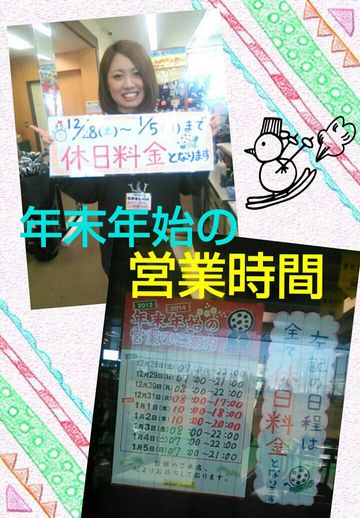 12/28(土)～1/5(日)まで
休日料金となります
年末年始の
営業時間
2013 2014
年末年始の
営業のご案内
12月28日(土) 07:00～22:00
12月29日(日) 07:00～21:00
12月30日(月) 08:00～22:00
12月31日(火) 08:00～17:00
1月1日(水) 10:00～18:00
1月2日(木) 10:00～20:00
1月3日(金) 08:00～22:00
1月4日(土) 07:00～22:00
1月5日(日) 07:00～21:00
皆様のご来店、
心よりお待ちしております。
左記の日程は
全て休日料金となります